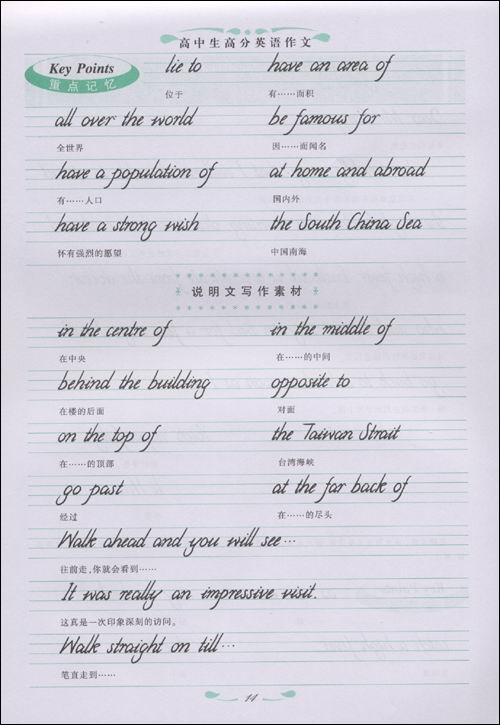 高中生高分英语作文
Key Points
重点记忆
lie to have an area of
位于 有……面积
all over the world be famous for
全世界 因……而闻名
have a population of at home and abroad
有……人口 国内外
have a strong wish the South China Sea
怀有强烈的愿望 中国南海
说明文写作素材
in the centre of in the middle of
在中央 在……的中间
behind the building opposite to
在楼的后面 对面
on the top of the Taiwan Strait
在……的顶部 台湾海峡
go past at the far back of
经过 在……的尽头
Walk ahead and you will see…
往前走,你就会看到……
It was really an impressive visit.
这真是一次印象深刻的访问。
Walk straight on till…
笔直走到……
14